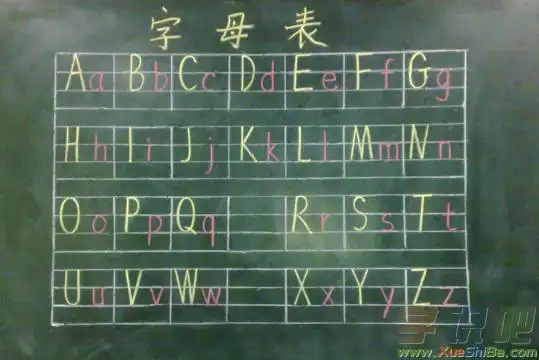 字母表
Aa Bb Cc Dd Ee Ff Gg
Hh Ii Jj Kk Ll Mm Nn
Oo Pp Qq Rr Ss Tt
Uu Vv Ww Xx Yy Zz
字说吧
www.XueShiBa.com